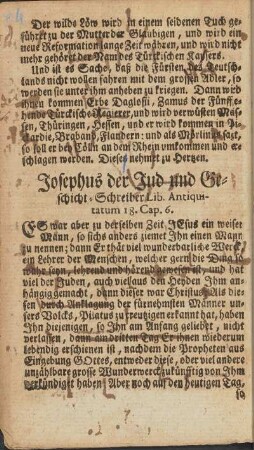 Der wilde Löw wird in einem seidenen Tuch ge-
führet zu der Mutter der Gläubigen, und wird ein
neue Reformation lange Zeit währen, und wird nicht
mehr gehöret der Nam des Türckischen Kaysers.
Und ist es Sache, daß die Fürsten des Teutsch-
lands nicht wollen fahren mit dem grossen Adler, so
werden sie unter ihm anheben zu kriegen. Dann wird
ihnen kommen Erbe Daglosii, Zamus der Fünffte-
hende Türckische Regierer, und wird verwüsten Mäis-
sen, Thüringen, Hessen, und er wird kommen in
cardie, Braband, Flandern: und als Merlinus sagt,
so soll er bey Cölln an dem Rhein umkommen und er-
schlagen werden. Dieses nehmet zu Hertzen.
Josephus der Jud und Ge-
schicht-Schreiber Lib. Antiqui-
tatum 18. Cap. 6.
ES war aber zu derselben Zeit JEsus ein weiser
Mann, so sichs anders ziemet Ihn einen Mann
zu nennen; dann Er thät viel wunderbarliche Werck,
ein Lehrer der Menschen, welcher gern die Ding so
wahr seyn, lehrend und hörend gewesen ist, und hat
viel der Juden, auch viel aus den Heyden Ihm an-
hängig gemacht, dann dieser war Christus. Als die-
sen durch Anklagung der fürnehmsten Männer un-
sers Volcks, Pilatus zu kreutzigen erkannt hat, haben
Ihn diejenigen, so Ihn am Anfang geliebet, nicht
verlassen, dann am dritten Tag Er ihnen wiederum
lebendig erschienen ist, nachdem die Propheten aus
Eingebung GOttes, entweder diese, oder viel andere
unzählbare grosse Wunderwerck zukünfftig von Ihm
verkündiget haben. Aber noch auf den heutigen Tag,
so